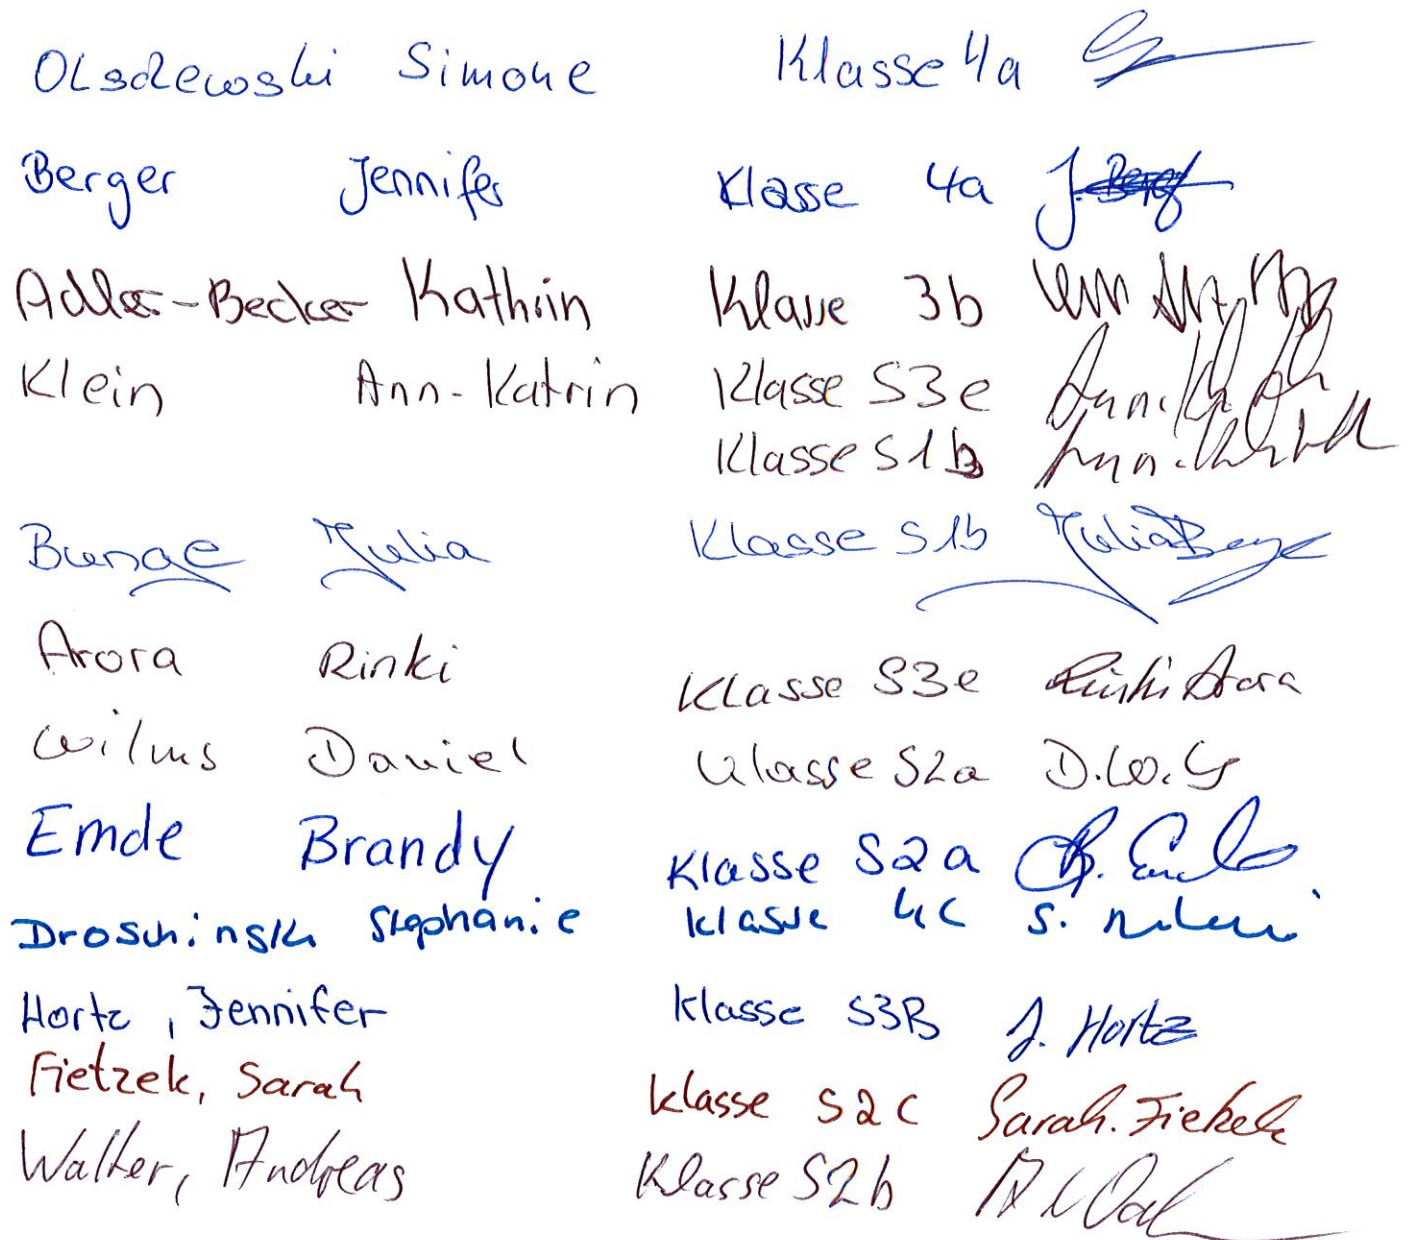 Olsdewski Simone Klasse 4a
Berger Jennifer Klasse 4a J. Berg
Adler-Becker Kathrin Klasse 3b
Klein Ann-Katrin Klasse S3e
Klasse S1b
Bunge Julia Klasse S1b Julia Bunge
Arora Rinki Klasse S3e Rinki Arora
Wilms Daniel Klasse S2a D.W.
Emde Brandy Klasse S2a B. Emde
Droschinski Stephanie Klasse 4c S.
Hortz, Jennifer Klasse S3B J. Hortz
Fietzek, Sarah Klasse S2c Sarah. Fietzek
Walter, Andreas Klasse S2b